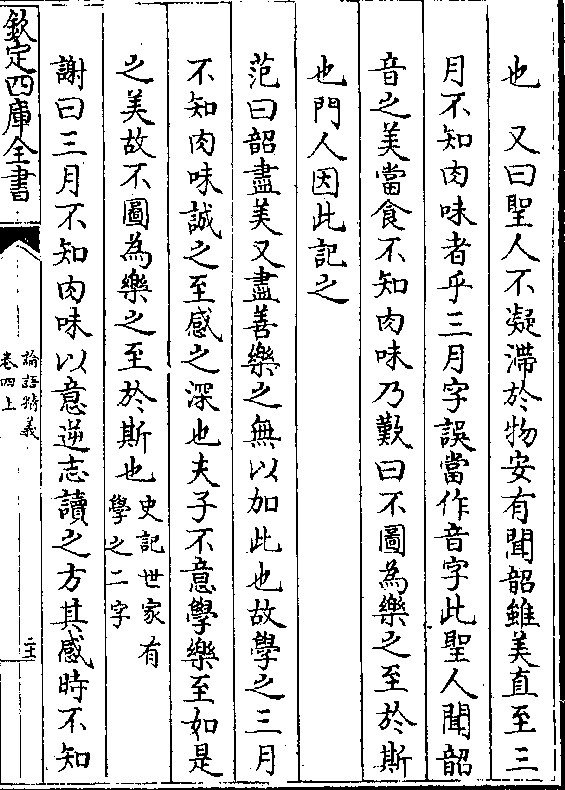 也　又曰聖人不凝滯於物安有聞韶雖美直至三
月不知肉味者乎三月字誤當作音字此聖人聞韶
音之美當食不知肉味乃歎曰不圖為樂之至於斯
也門人因此記之
范曰韶盡美又盡善樂之無以加此也故學之三月
不知肉味誠之至感之深也夫子不意學樂至如是
之美故不圖為樂之至於斯也史記世家有
學之二字
謝曰三月不知肉味以意逆志讀之方其感時不知
欽定四庫全書
論語精義
卷四上